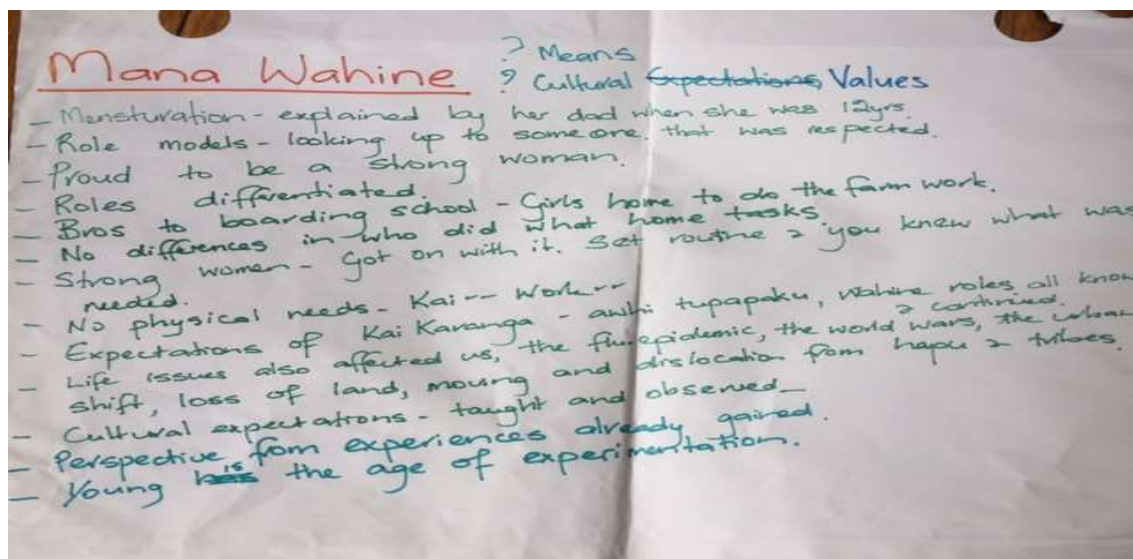 Mana Wahine
? Means
? Cultural Expectations Values
- Mensturation - explained by her dad when she was 12yrs.
- Role models - looking up to someone that was respected.
- Proud to be a strong woman.
- Roles differentiated.
- Bros to boarding school - Girls home to do the farm work.
- No differences in who did what home tasks.
- Strong women - Got on with it. Set routine & you knew what was
needed.
- No physical needs - Kai -- Work --
- Expectations of Kai Karanga - awhi tupapaku, Wahine roles all know
& continued.
- Life issues also affected us, the flu epidemic, the world wars, the urban
shift, loss of land, moving and dislocation from hapu & tribes.
- Cultural expectations - taught and observed -
- Perspective from experiences already gained.
- Young is the age of experimentation.